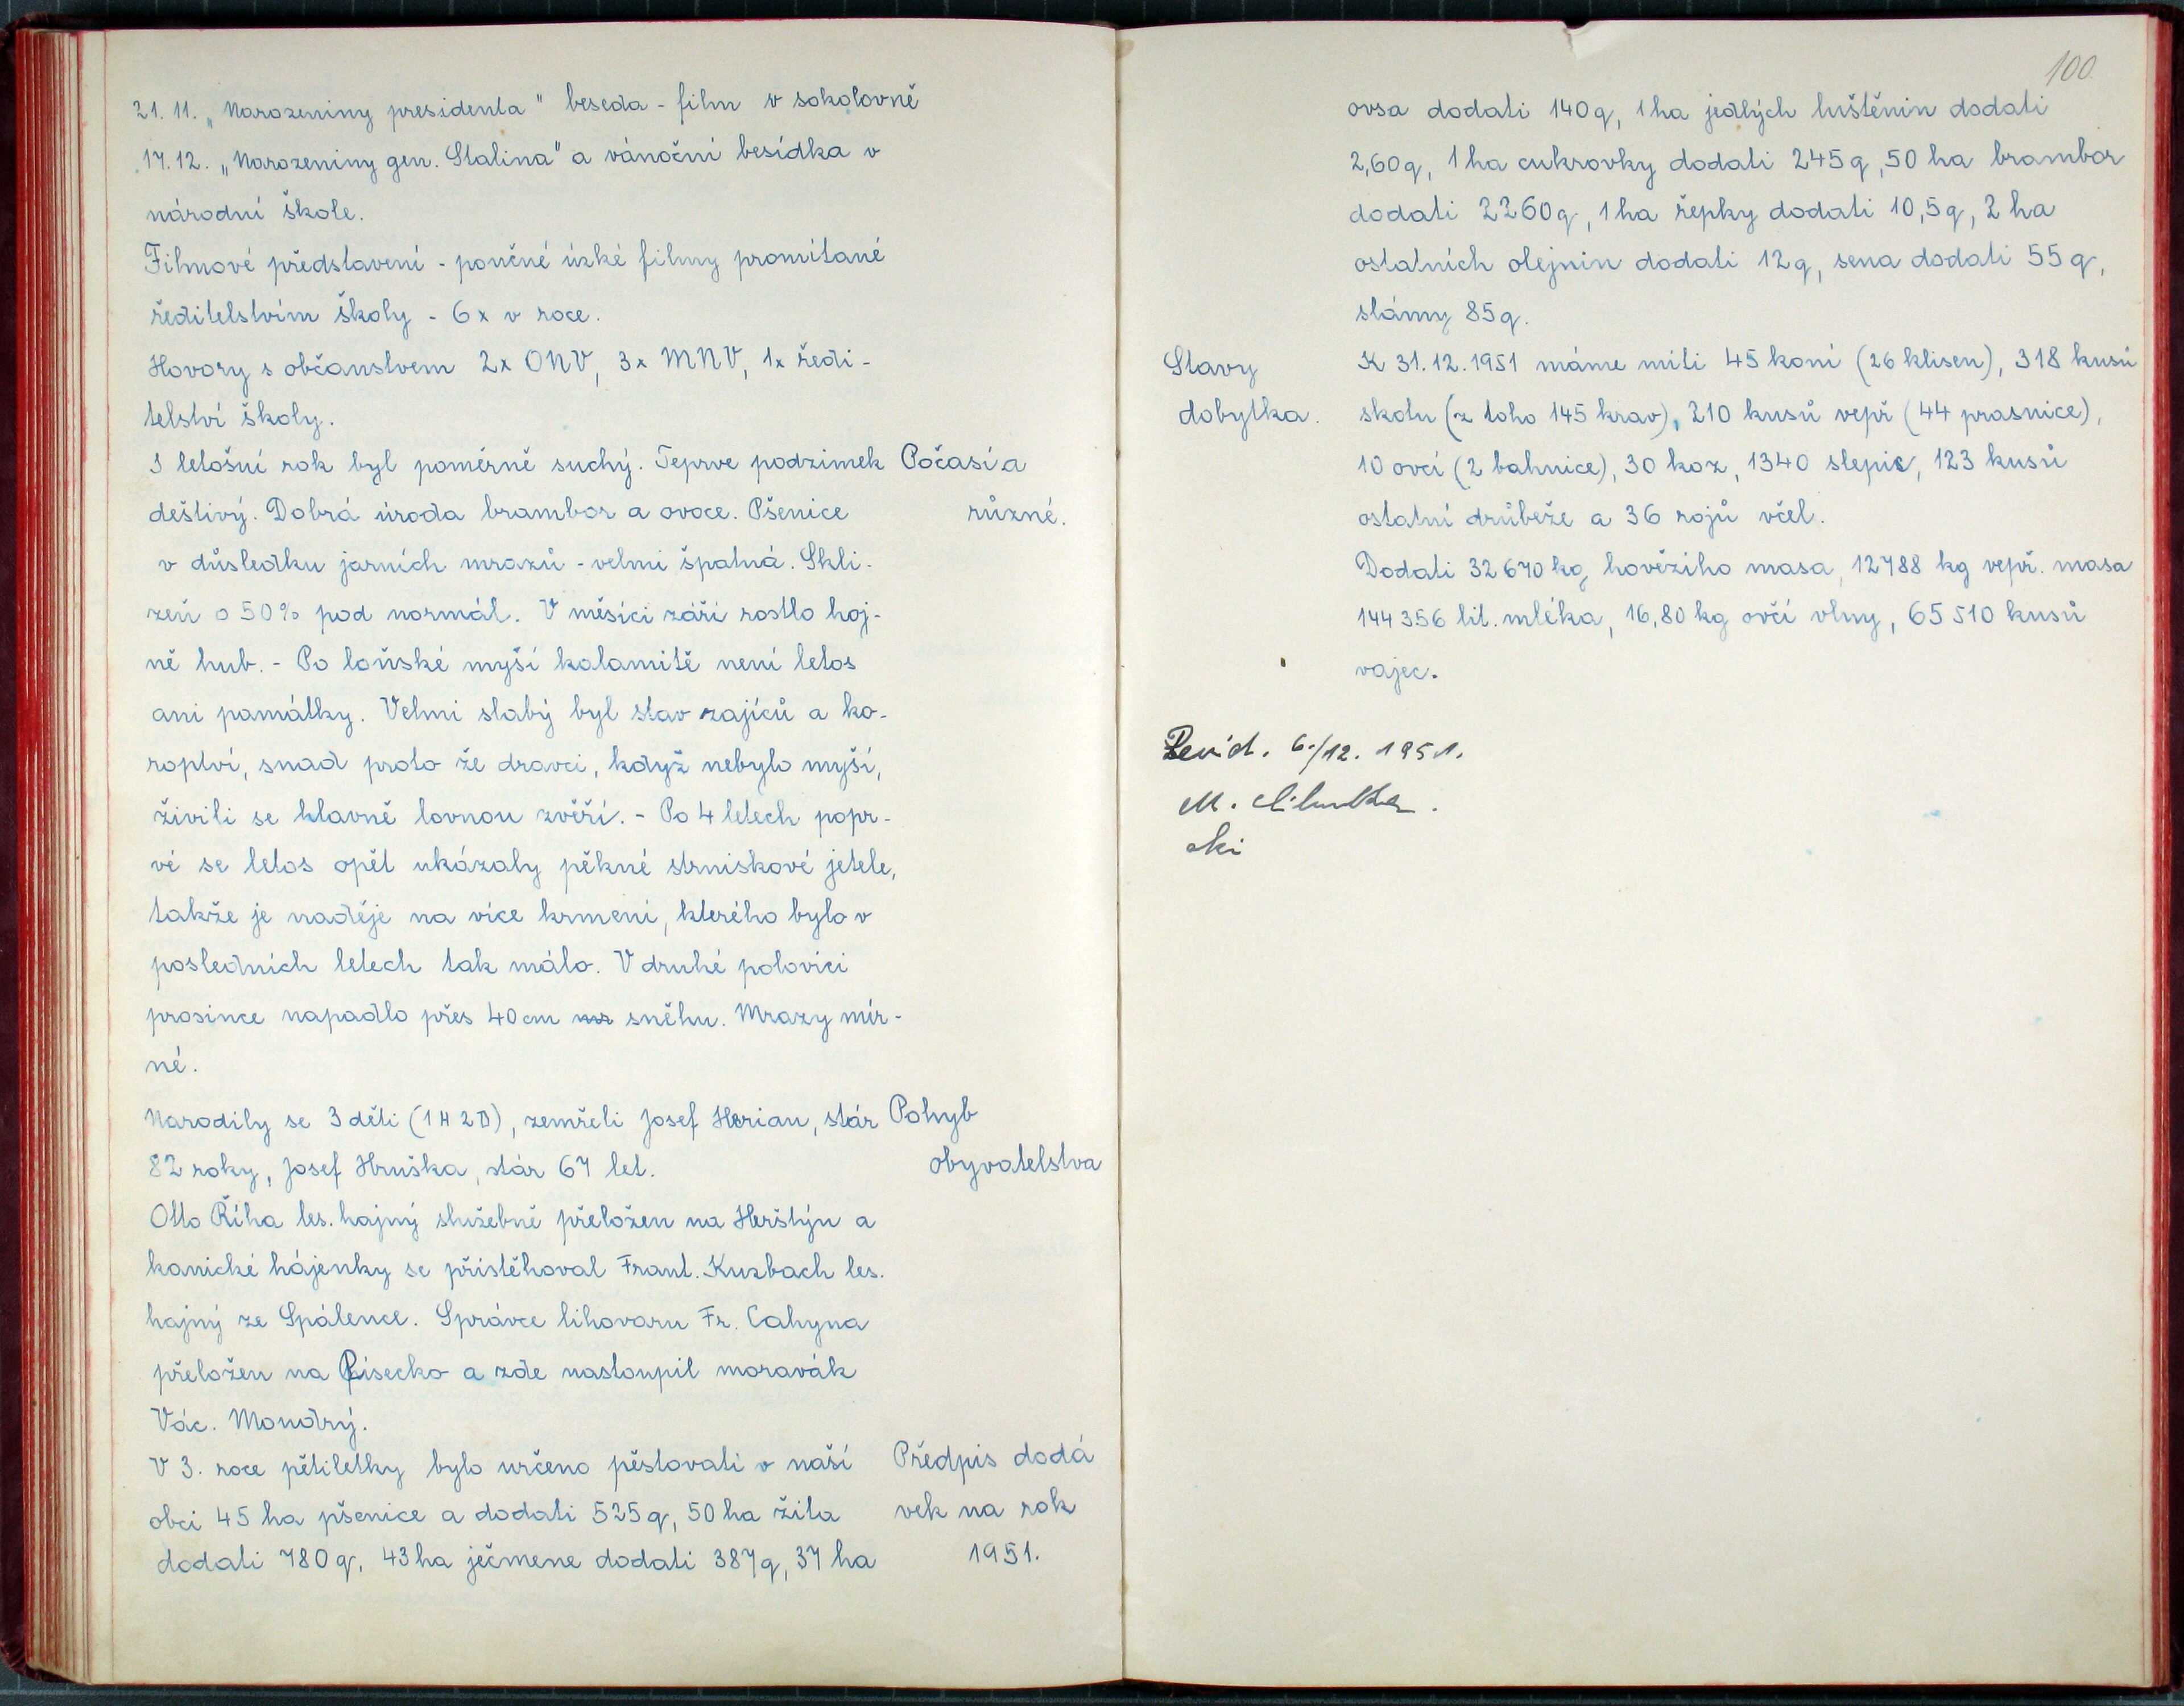 21. 11. „Narozeniny presidenta" beseda - film v sokolovně
17. 12. „Narozeniny gen. Stalina" a vánoční besídka v
národní škole.
Filmové představení - poučné úzké filmy promítané
ředitelstvím školy - 6x v roce.
Hovory s občanstvem 2x ONV, 3x MNV, 1x ředi-
telství školy.
I letošní rok byl poměrně suchý. Teprve podzimek
Počasí a
deštivý. Dobrá úroda brambor a ovoce. Pšenice
různé.
v důsledku jarních mrazů - velmi špatná. Skli-
zeň o 50% pod normál. V měsíci září rostlo hoj-
ně hub. - Po loňské myší kalamitě není letos
ani památky. Velmi slabý byl stav zajíců a ko-
roptví, snad proto že dravci, když nebylo myší,
živili se hlavně lovnou zvěří. - Po 4 letech popr-
vé se letos opět ukázaly pěkné strniskové jetele,
takže je naděje na více krmení, kterého bylo v
posledních letech tak málo. V druhé polovici
prosince napadlo přes 40 cm sněhu. Mrazy mír-
né.
Narodily se 3 děti (1H 2D), zemřeli Josef Herian, stár
Pohyb
82 roky, Josef Hruška, stár 67 let.
obyvatelstva
Otto Říha les. hajný služebně přeložen na Herštýn a
kanické hájenky se přistěhoval Frant. Kuzbach les.
hajný ze Spálence. Správce lihovaru Fr. Cahyna
přeložen na Písecko a zde nastoupil moravák
Vác. Moudrý.
V 3. roce pětiletky bylo určeno pěstovati v naší
Předpis dodá
obci 45 ha pšenice a dodati 525 q, 50 ha žita
vek na rok
dodati 780 q, 43 ha ječmene dodati 387 q, 37 ha
1951.
100
ovsa dodati 140 q, 1 ha jedlých luštěnin dodati
2,60 q, 1 ha cukrovky dodati 245 q, 50 ha brambor
dodati 2260 q, 1 ha řepky dodati 10,5 q, 2 ha
ostatních olejnin dodati 12 q, sena dodati 55 q,
slámy 85 q.
Stavy
K 31. 12. 1951 máme míti 45 koní (26 klisen), 318 kusů
dobytka.
skotu (z toho 145 krav), 210 kusů vepř (44 prasnice),
10 ovcí (2 bahnice), 30 koz, 1340 slepic, 123 kusů
ostatní drůbeže a 36 rojů včel.
Dodati 32670 kg hovězího masa, 12788 kg vepř. masa
144356 lit. mléka, 16,80 kg ovčí vlny, 65510 kusů
vajec.
Revid. 6./12. 1951.
M.